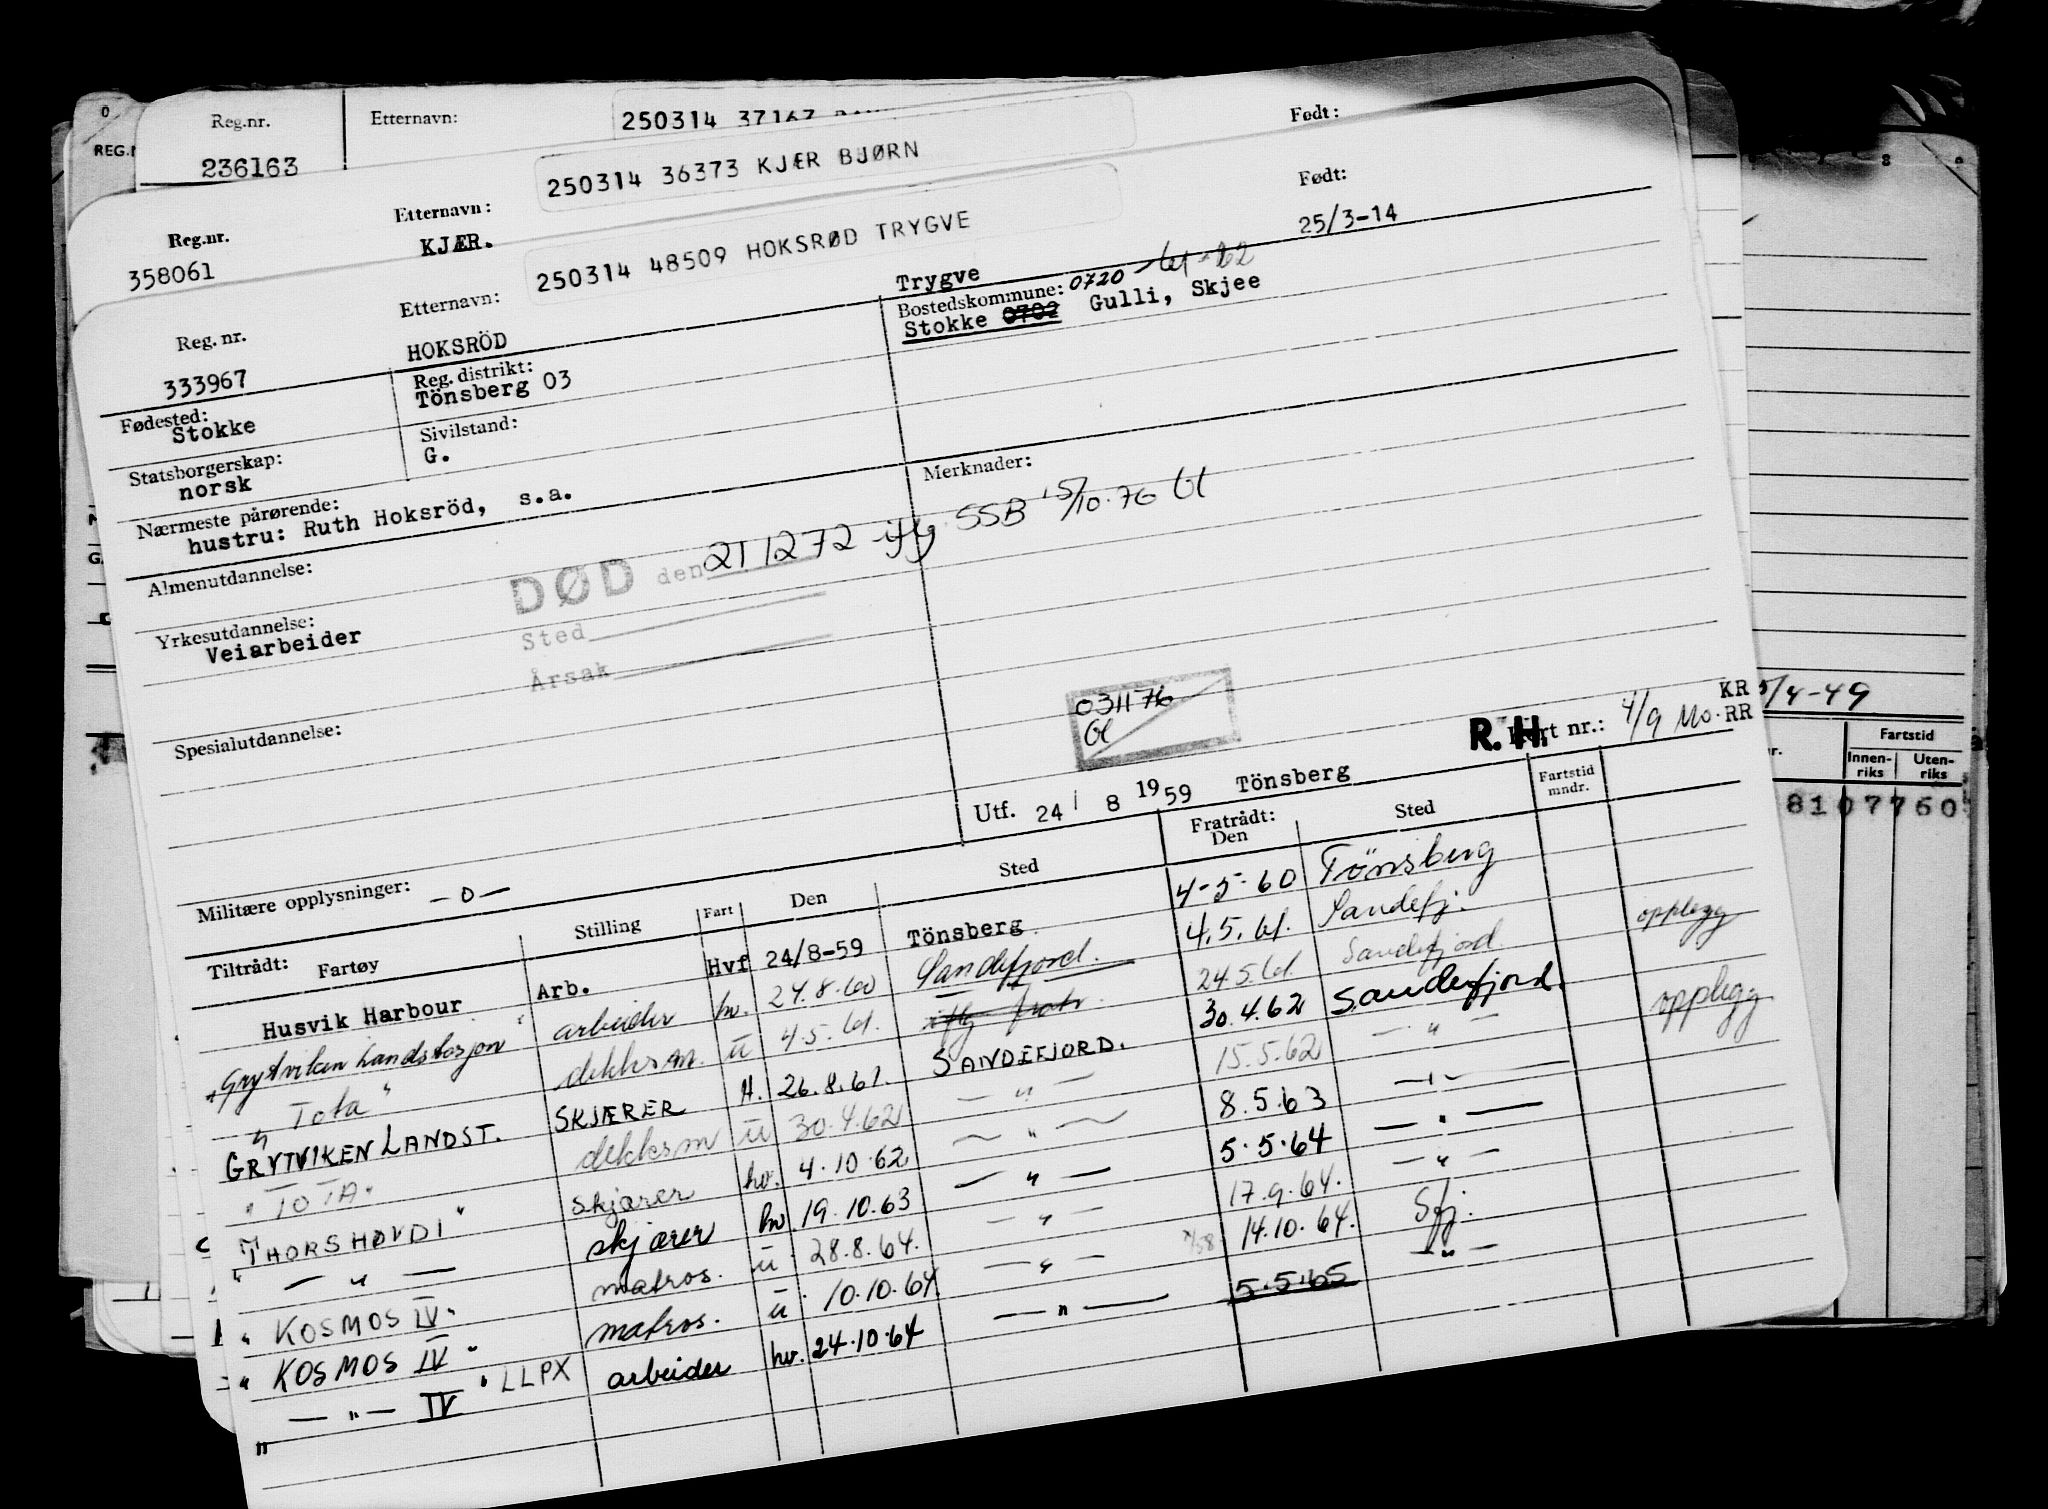 Reg.nr.
236163
Etternavn:
250314 37167
Født:
Reg.nr.
358061
Etternavn:
KJÆR.
250314 36373 KJÆR BJØRN
Født:
Reg. nr.
333967
Etternavn:
HOKSRÖD
250314 48509 HOKSRØD TRYGVE
Trygve
25/3-14
Fødested:
Stokke
Reg. distrikt:
Tönsberg 03
Bostedskommune: 0720
Stokke 0702 Gulli, Skjee
Statsborgerskap:
norsk
Sivilstand:
G.
Nærmeste pårørende:
hustru: Ruth Hoksröd, s.a.
Merknader:
Almenutdannelse:
DØD den 211272 iflg SSB 15/10.76 Gl
Sted
Årsak
Yrkesutdannelse:
Veiarbeider
Spesialutdannelse:
031176
Gl
R.H.
Kort nr.: 4/9 Mo.
KR
RR
Utf. 24 / 8 1959 Tönsberg
Militære opplysninger: -o-
Tiltrådt: Fartøy Stilling Fart Den Sted Fratrådt: Den Sted Fartstid mndr.
Husvik Harbour Arb. Hvf 24/8-59 Tönsberg 4-5-60 Tönsberg
Grytviken Landstasjon arbeider hv. 24.8.60 Sandefjord. 4.5.61. Sandefj.
"Tota" dekksm. u 4.5.61. iflg fratr. 24.5.61. Sandefjord opplegg
GRYTVIKEN LANDST. SKJÆRER H. 26.8.61. SANDEFJORD. 30.4.62 Sandefjord.
"TOTA" dekksm u 30.4.62 — " — 15.5.62 — " — opplegg
"THORSHØVDI" skjærer hv. 4.10.62 — " — 8.5.63 — " —
" — " — skjærer hv. 19.10.63 — " — 5.5.64 — " —
"KOSMOS IV" matros. u 28.8.64. — " — 17.9.64. — " —
"KOSMOS IV" matros. u 10.10.64. — " — 14.10.64. Sfj.
" — " — IV" LLPX arbeider hv. 24.10.64 — " — 5.5.65 — " —
REG.N
5/4-49
Fartstid
Innen-riks
Uten-riks
8107760